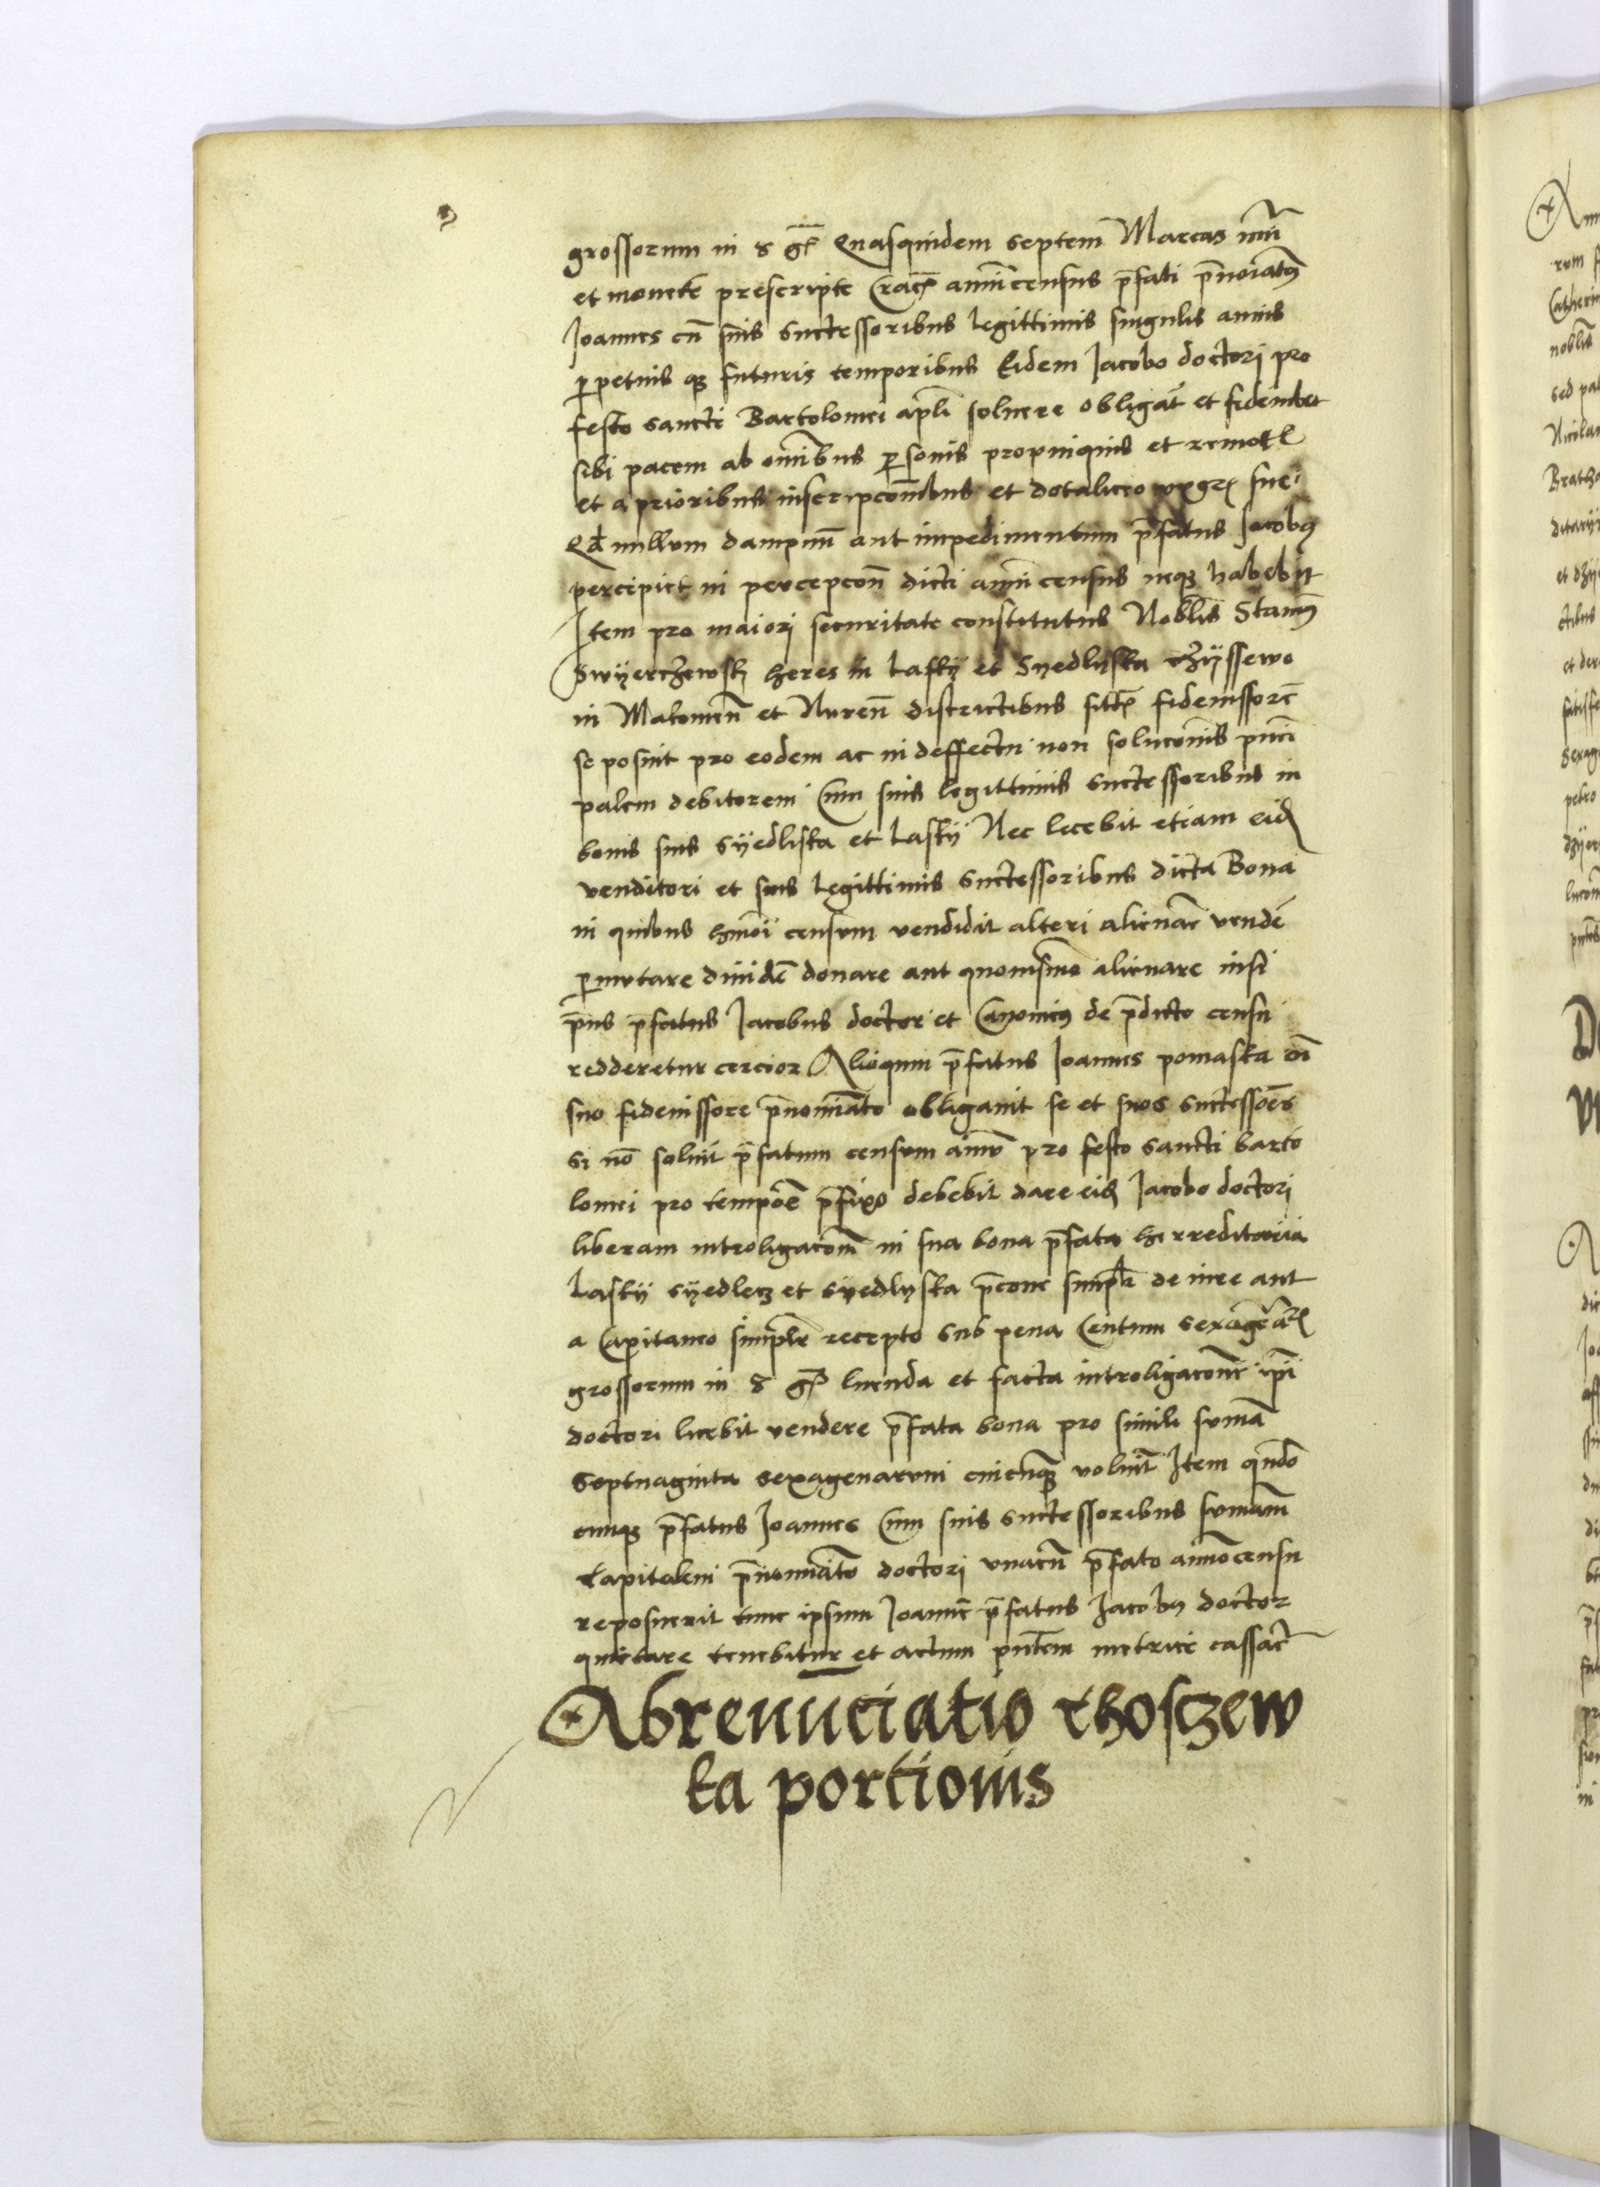 grossorum in 8 gr̄ Quasquidem septem Marcas nūi
et monete prescripte ratē annicensus p̄fati p̄noiatus
Joannes cū suis successoribus legittimis singulis annis
perpetuis qz futuris temporibus Eidem Jacobo doctori pro
festo sancti Bartolomei apli soluere obligat̄ et fideiubet
sibi pacem ab omībus personis propinquis et remot
et a prioribus inscripcoībus et dotalicio uxoris sue
Qd nullum dampnū aut impedimentum p̄fatus Jacobus
percipiet in percepcōn dicti annī census neqz habebit
Item pro maiori securitate constitutus Noblīs Stanūs
Swÿerczewsky heres in Laskÿ et Syedlyska
in et Nuren̄ districtibus fideiussorē
se posuit pro eodem ac in deffectu non solucōnis pncī
palem debitorem Cum suis legittimis successoribus in
bonis suis Sÿedliska et Laskÿ Nec licebit etiam eid
venditori et suis legittimis successoribus dicta Bona
in quibus hmōi censum vendidit alteri alienar̄ vendē
permutare dividē donare aut quouismō alienare nisi
p̄us p̄fatus Jacobus doctor et Canonicus de p̄dicto censu
redderetur cercior Alioquin p̄fatus Joannes pomaska cū
suo fideiussore p̄nomiāto obligauit se et suos successōes
si nō soluit p̄fatum censum annū pro festo sancti barto
lomei pro tempoē p̄fixo debebit dare eid Jacobo doctori
liberam introligacōnē in sua bona p̄fata herreditaria
Laskÿ sÿedlecz et sÿedlyska p̄cone simplr de iure aut
a Capitaneo simplr recepto sub pena Centum sexagēar
grossorum in 8 gr luenda et facta introligacōnē ipī
doctori licebit vendere p̄fata bona pro simili sūma
Septuaginta sexagenarum cuicūqz voluit Item qn̄do
cunqz p̄fatus Joannes Cum suis successoribus sūmam
Capitalem p̄nomiāto doctori unacū p̄fato annocensu
reposuerit tunc ipsum Joannē p̄fatus Jacobus doctor
quietare tenebitur et actum pn̄tem metrice cassare
Abrenūciatio thosczew
ka portionis